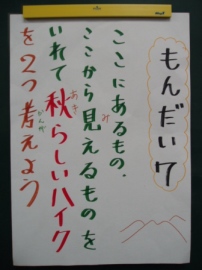 もんだい7
ここにあるもの、
ここから見えるものを
いれて秋らしいハイク
を2つ考えよう